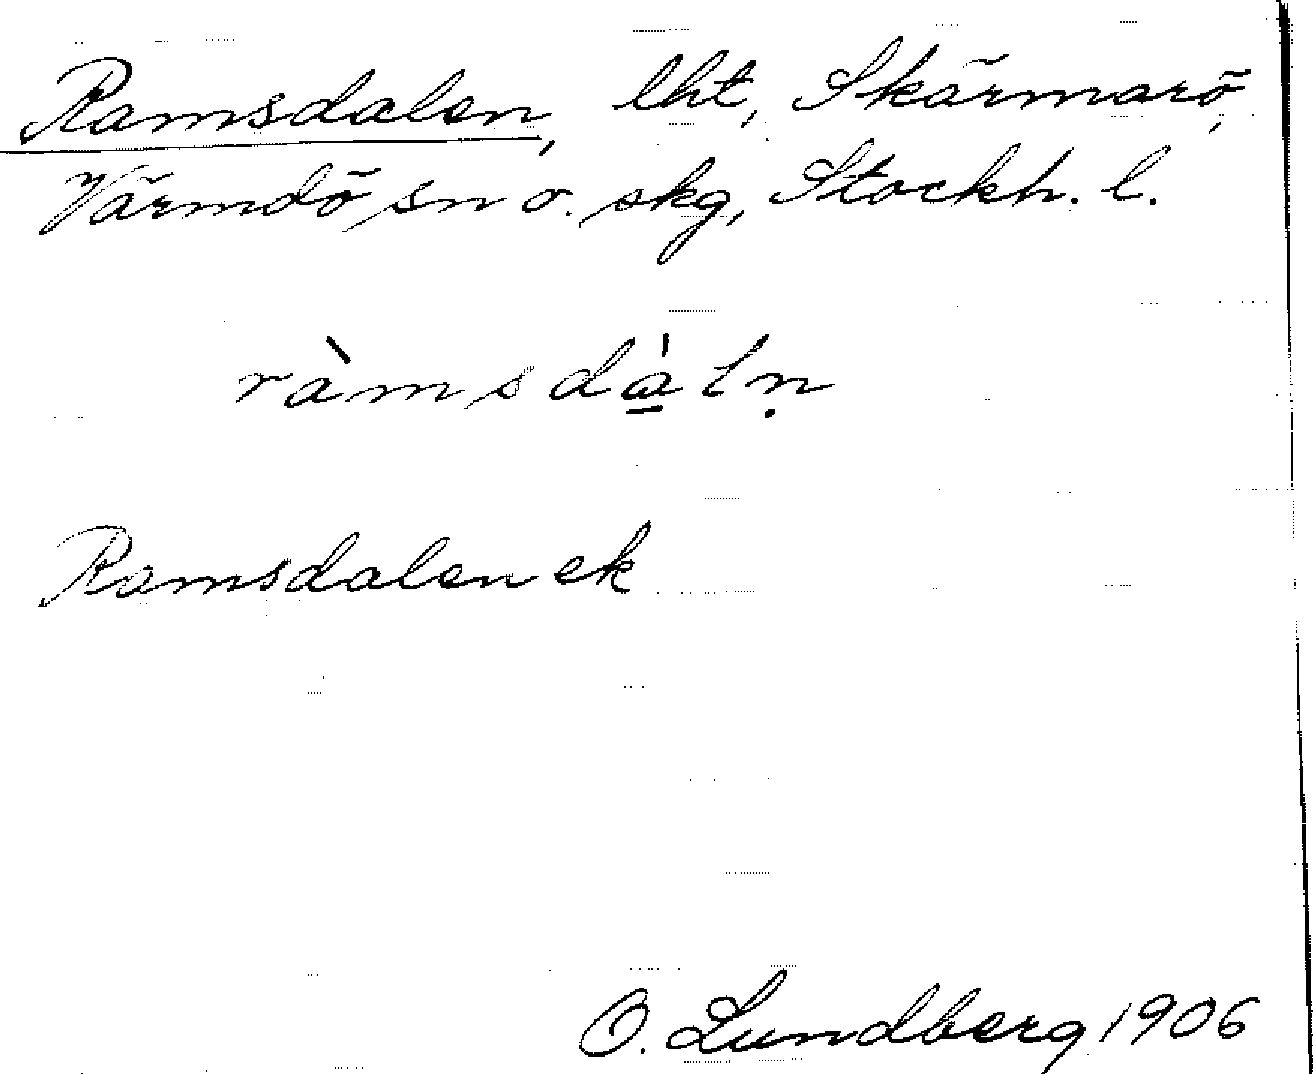 Ramsdalen, lht, Skärmarö,
Värmdö sn o. skg, Stockh. l.
ràmsda̲̍lṇ
Ramsdalen ek
O. Lundberg 1906